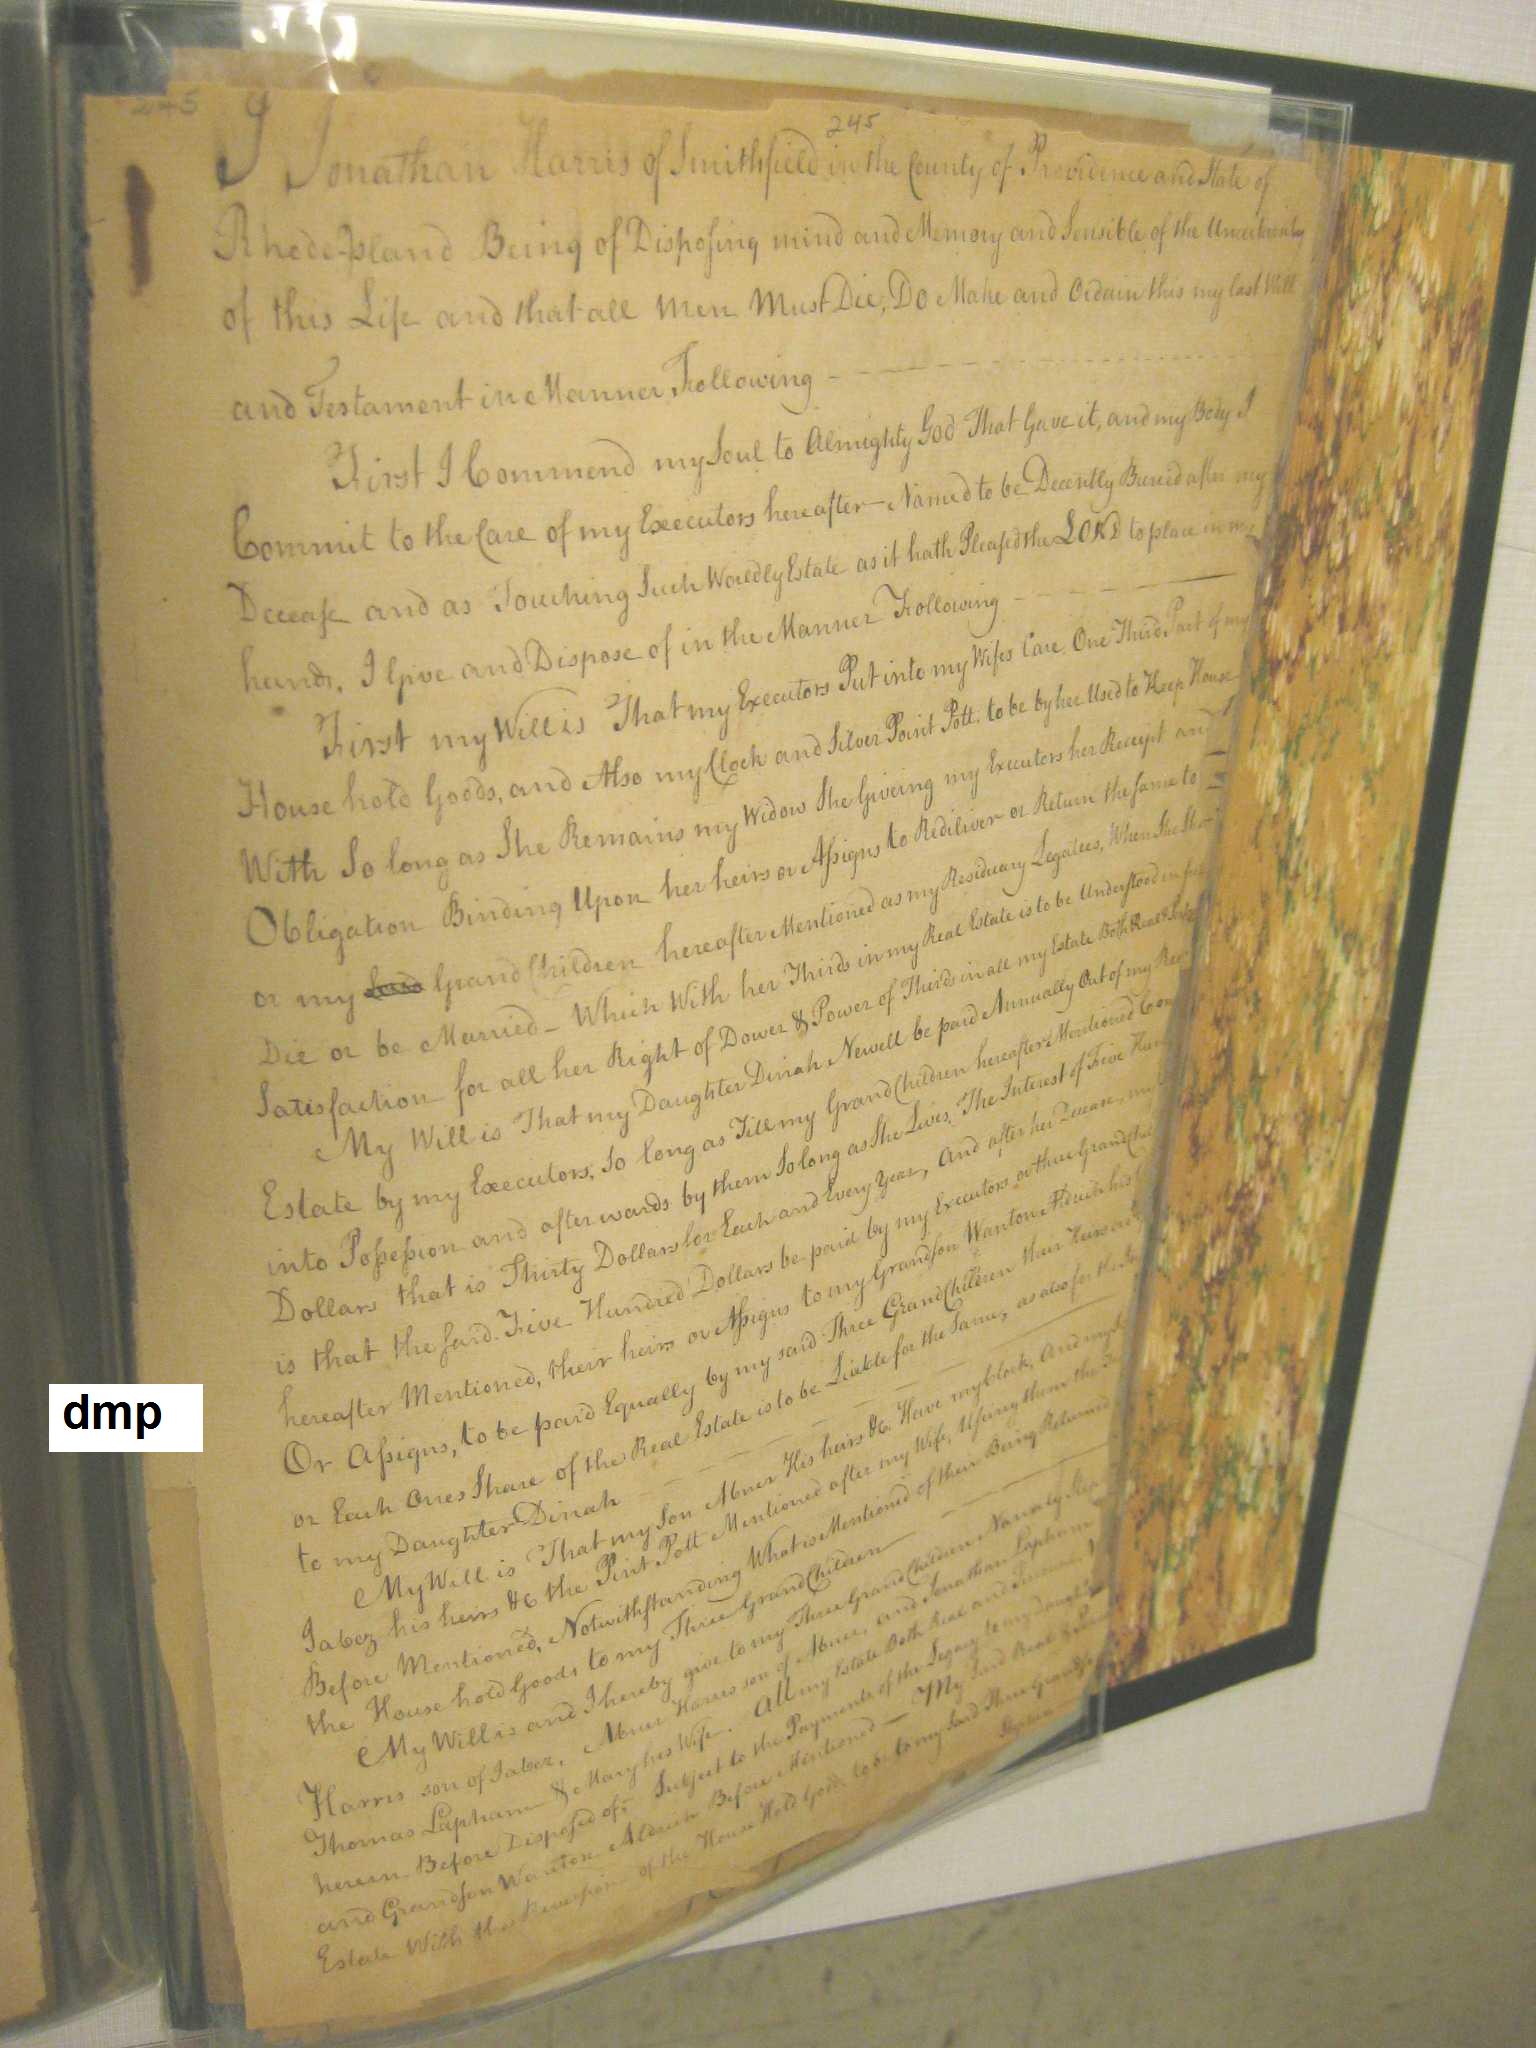 245
245
I Jonathan Harris of Smithfield in the County of Providence and State of
Rhode-Island Being of Disposing mind and Memory and Sensible of the Uncertainty
of this Life and that all Men Must Die, Do Make and Ordain this my last Will
and Testament in Manner Following
First I Commend my Soul to Almighty God That Gave it, and my Body I
Commit to the Care of my Executors hereafter Named to be Decently Buried after my
Decease and as Touching Such Worldly Estate as it hath Pleased the LORD to place in my
hands, I Give and Dispose of in the Manner Following
First my Will is That my Executors Put into my Wifes Care One Third Part of my
House hold Goods, and Also my Clock and Silver Point Pott. to be by her Used to Keep House
With So long as She Remains my Widow She Giveing my Executors her Receipt and
Obligation Binding Upon her heirs or Assigns to Rediliver or Return the same to
or my Grand Children hereafter Mentioned as my Residuary Legatees, When She
Die or be Married - Which With her Thirds in my Real Estate is to be Understood in full
Satisfaction for all her Right of Dower & Power of Thirds in all my Estate Both Real &
My Will is That my Daughter Dinah Newell be paid Annually Out of my
Estate by my Executors, So long as Till my Grand Children hereafter Mentioned Come
into Possession and afterwards by them So long as She Lives, The Interest of Five
Dollars that is Thirty Dollars for Each and Every Year, And after her Decease, my
is that the said Five Hundred Dollars be paid by my Executors or three Grand
hereafter Mentioned, their heirs or Assigns to my Grandson Wanton Aldrich his
Or Assigns, to be paid Equally by my said Three Grand Children their Heirs
or Each Ones Share of the Real Estate is to be Liable for the Same, as also for the
to my Daughter Dinah
My Will is That my Son Abner His heirs &c Have my Clock, And my
Jabez his heirs &c the Pint Pott Mentioned after my Wife, Useing them the
Before Mentioned, Notwithstanding What is Mentioned of their Being Returned
the House hold Goods to my Three Grand Children
My Will is and I hereby give to my Three Grand Children Namely
Harris son of Jabez, Abner Harris son of Abner, and Jonathan Lapham
Thomas Lapham & Mary his Wife. All my Estate Both Real and
herein Before Disposed of, Subject to the Payments of the Legacy to my Daughter
and Grandson Wanton Aldrich Before Mentioned - My Said Real &
Estate With the Reversion of the House Hold Goods to be to my Said Three
Stephen
dmp